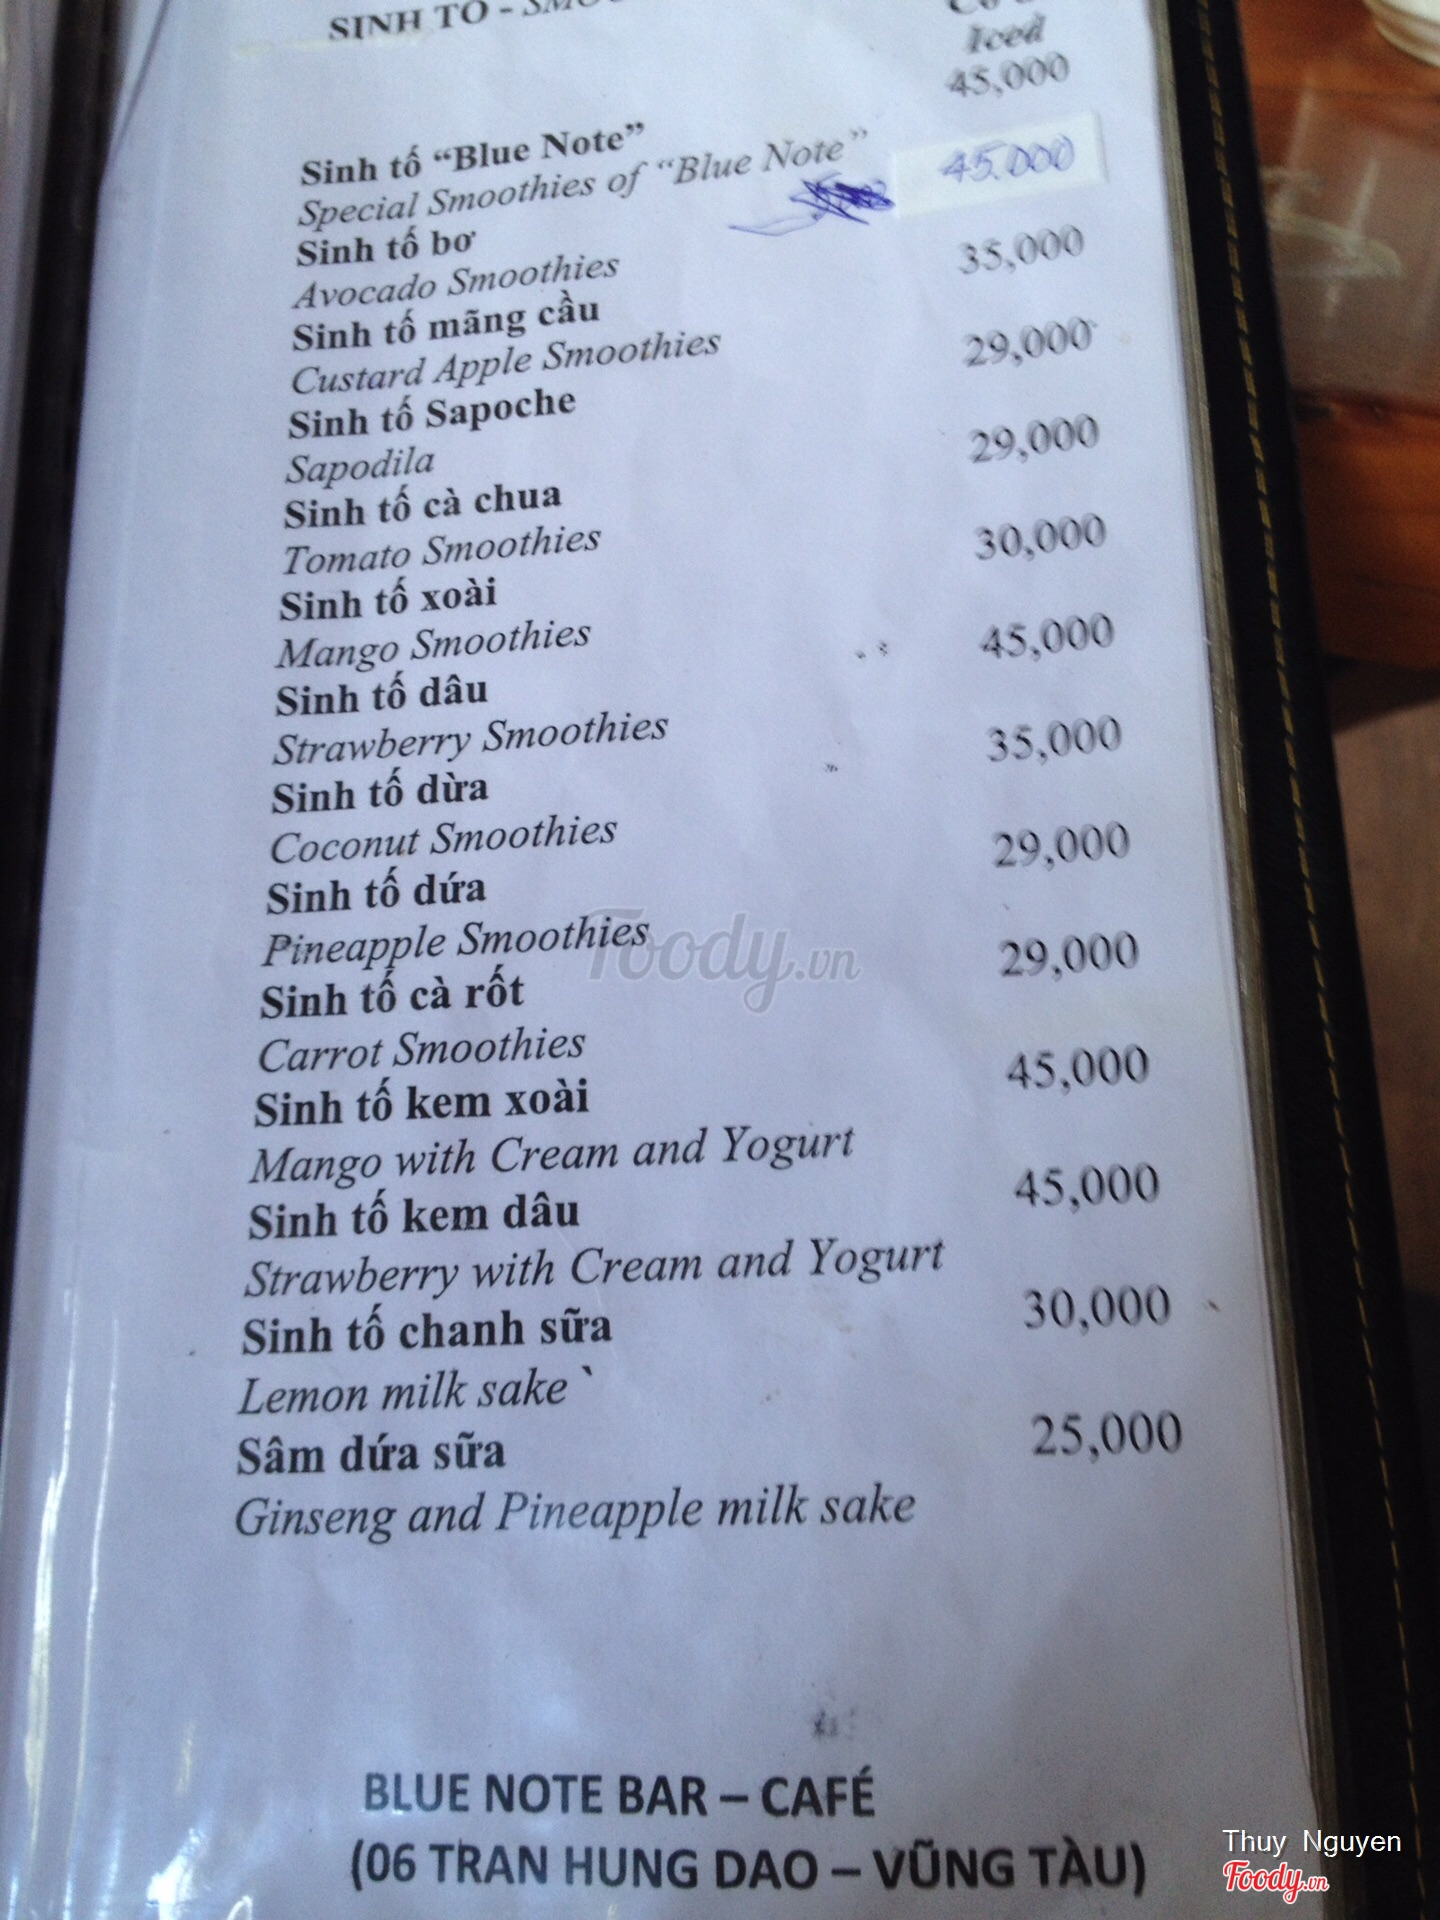 SINH TỐ -
Iced
45,000
Sinh tố “Blue Note”
Special Smoothies of “Blue Note”
45.000
Sinh tố bơ
Avocado Smoothies
35,000
Sinh tố mãng cầu
Custard Apple Smoothies
29,000
Sinh tố Sapoche
Sapodila
29,000
Sinh tố cà chua
Tomato Smoothies
30,000
Sinh tố xoài
Mango Smoothies
45,000
Sinh tố dâu
Strawberry Smoothies
35,000
Sinh tố dừa
Coconut Smoothies
29,000
Sinh tố dứa
Pineapple Smoothies
29,000
Sinh tố cà rốt
Carrot Smoothies
45,000
Sinh tố kem xoài
Mango with Cream and Yogurt
45,000
Sinh tố kem dâu
Strawberry with Cream and Yogurt
30,000
Sinh tố chanh sữa
Lemon milk sake `
25,000
Sâm dứa sữa
Ginseng and Pineapple milk sake
Foody.vn
BLUE NOTE BAR – CAFÉ
(06 TRAN HUNG DAO – VŨNG TÀU)
Thuy Nguyen
Foody.vn